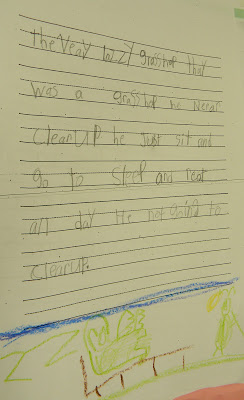 the Veay lazzy grasshop thay
was a grasshop he Never
Clean UP he Just sit and
go to Sleep and reat
all day He not going to
cleanup.